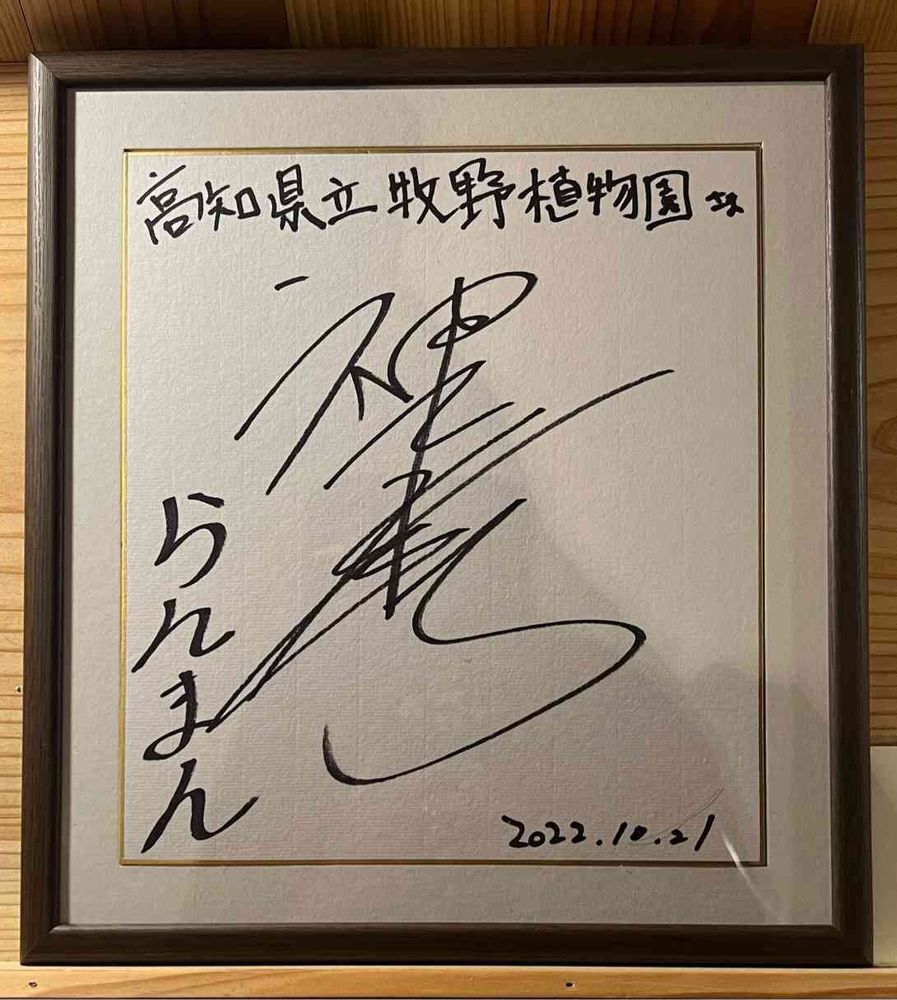 高知県立牧野植物園さま
らんまん
2022.10.21